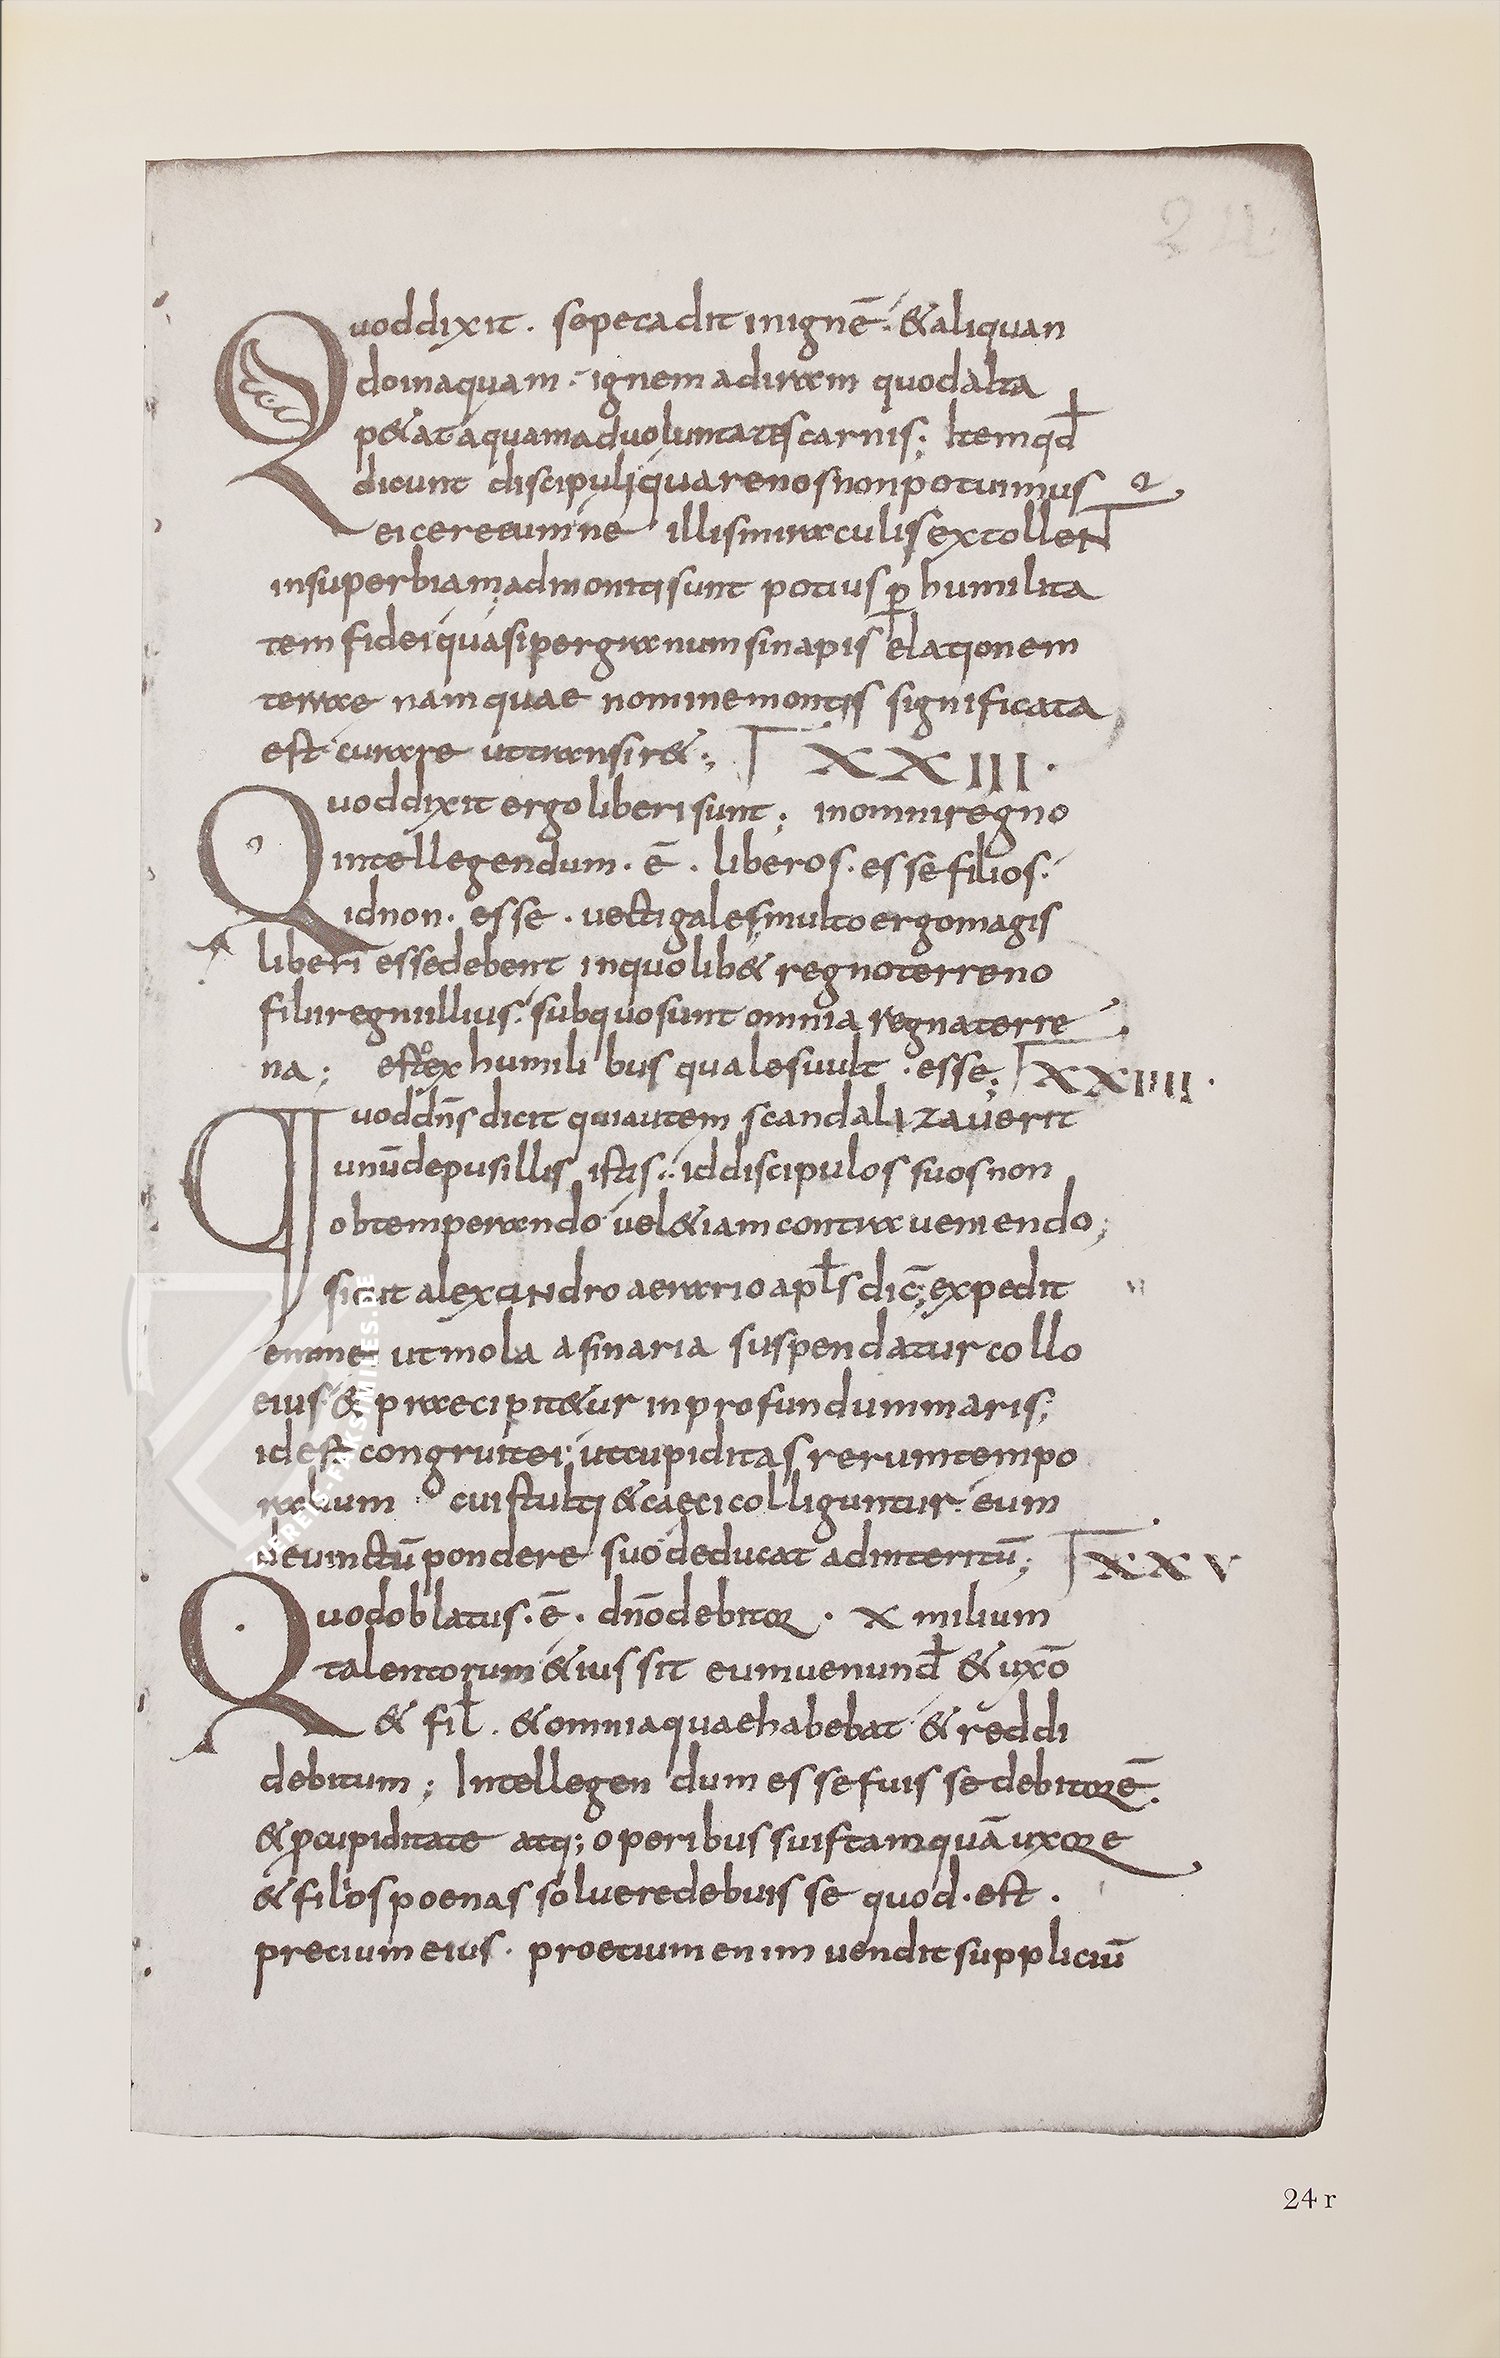 24
Quoddixit. sepecadit inignē. &aliquan
doinaquam. ignem adiram quodalta
p&at aquamaduoluntatescarnis; Itemqđ
dicunt discipuli quarenosnonpotuimus
eicereeumne illismiraculisextollerN̄T
insuperbiam admonitisunt potius ꝑ humilita
tem fidei quasipergranumsinapis elationem
terrae namquae nominemontis significata
est curare uttransire&; XXIII.
Quoddixitergoliberisunt; inomniregno
intellegendum. ē. liberos. essefilios.
idnon. esse. uectigalesmultoergomagis
liberi essedebent inquolib& regnoterreno
filiiregniillius. subquosunt omnia regnaterre
na; estex humilibus qualesuult. esse; XXIIII.
Quoddn̄sdicit quiautem scandalizauerit
unūdepusillis istis. iddiscipulossuosnon
obtemperando uel&iamcontraueniendo;
sicut alexandroaerarioapłsdic̄; expedit
enimei utmola asinaria suspendaturcollo
eius & praecipit&ur inprofundummaris;
idest congruitei; utcupiditasrerumtempo
ralium cuistulti&caecicolliguntur. eum
deuinctūpondere suodeducat adinteritū; XXV
Quodoblatus. ē. dn̄odebitor. X milium
talentorum &iussit eumuenunđ &uxō
& fił. &omniaquaehabebat & reddi
debitum; Intellegendum essefuissedebitorē.
&ꝑcupiditate atq; operibussuistamquāuxore
&filiospoenassolueredebuisse quod. est.
preciumeius. proetiumenim uenditsuppliciū
24 r
ZIEREIS-FAKSIMILES.DE